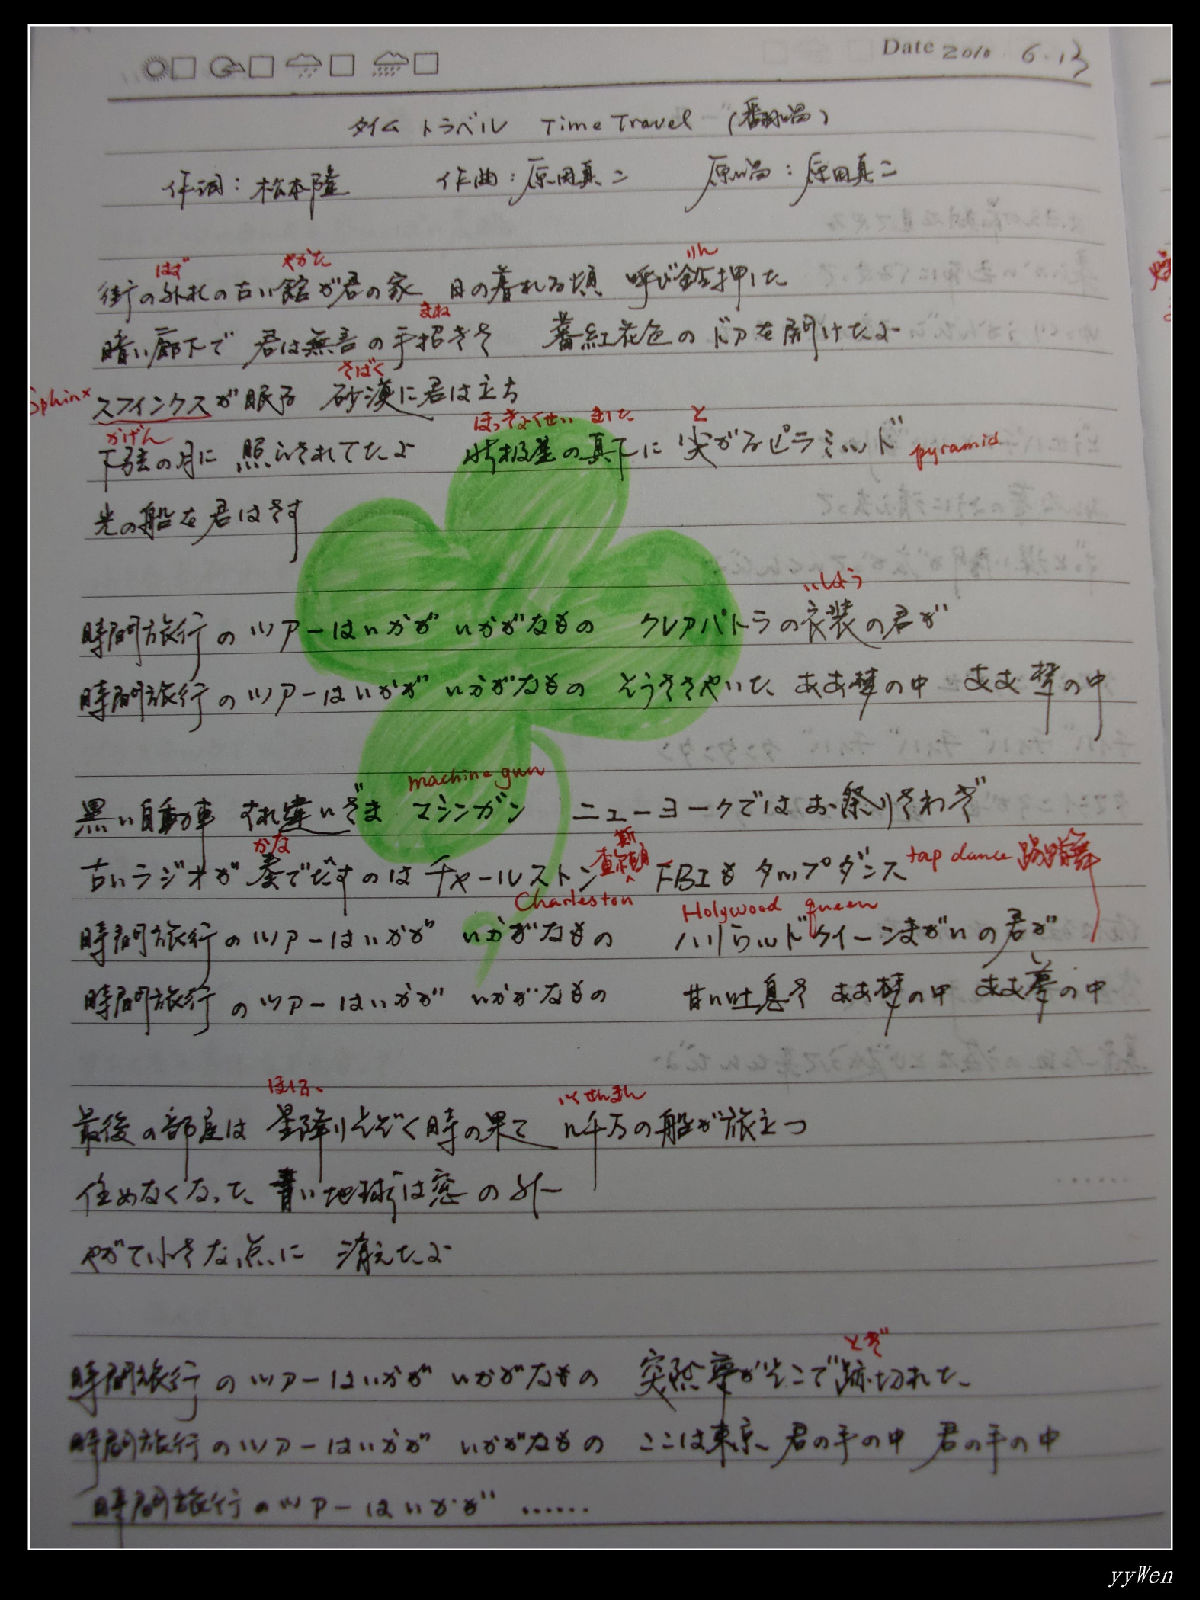 Date 2010 6.13
タイム トラベル Time Travel (翻唱)
作詞：松本隆 作曲：原田真二 原唱：原田真二
はず やかた りん
街の外れの古い館が君の家 日の暮れる頃 呼び鈴押した
まね
暗い廊下で 君は無言の手招きさ 蕃紅花色のドアを開けたよ
さばく
Sphinx スフィンクスが眠る 砂漠に君は立ち
かげん ほっきょくせい ました と
下弦の月に 照らされてたよ 北極星の真下に 尖がるピラミッド pyramid
光の船を君はさす
いしょう
時間旅行のツアーはいかが いかがなもの クレアパトラの衣装の君が
時間旅行のツアーはいかが いかがなもの そうささやいた ああ夢の中 ああ夢の中
machine gun
黒い自動車 すれ違いざま マシンガン ニューヨークではお祭りさわぎ
かな 斯
古いラジオが奏でだすのはチャールストン 查爾頓 FBIもタップダンス tap dance 踢踏舞
Charleston Holywood queen
時間旅行のツアーはいかが いかがなもの ハリウッドクイーンまがいの君が
時間旅行のツアーはいかが いかがなもの 甘い吐息さ ああ夢の中 ああ夢の中
いくせんまん
最後の部屋は 星降りそそぐ時の果て 幾千万の船が旅立つ
住めなくなった 青い地球は窓の外
やがて小さな点に 消えたよ
とぎ
時間旅行のツアーはいかが いかがなもの 突然夢がそこで跡切れた
時間旅行のツアーはいかが いかがなもの ここは東京、君の手の中 君の手の中
時間旅行のツアーはいかが ……
yyWen